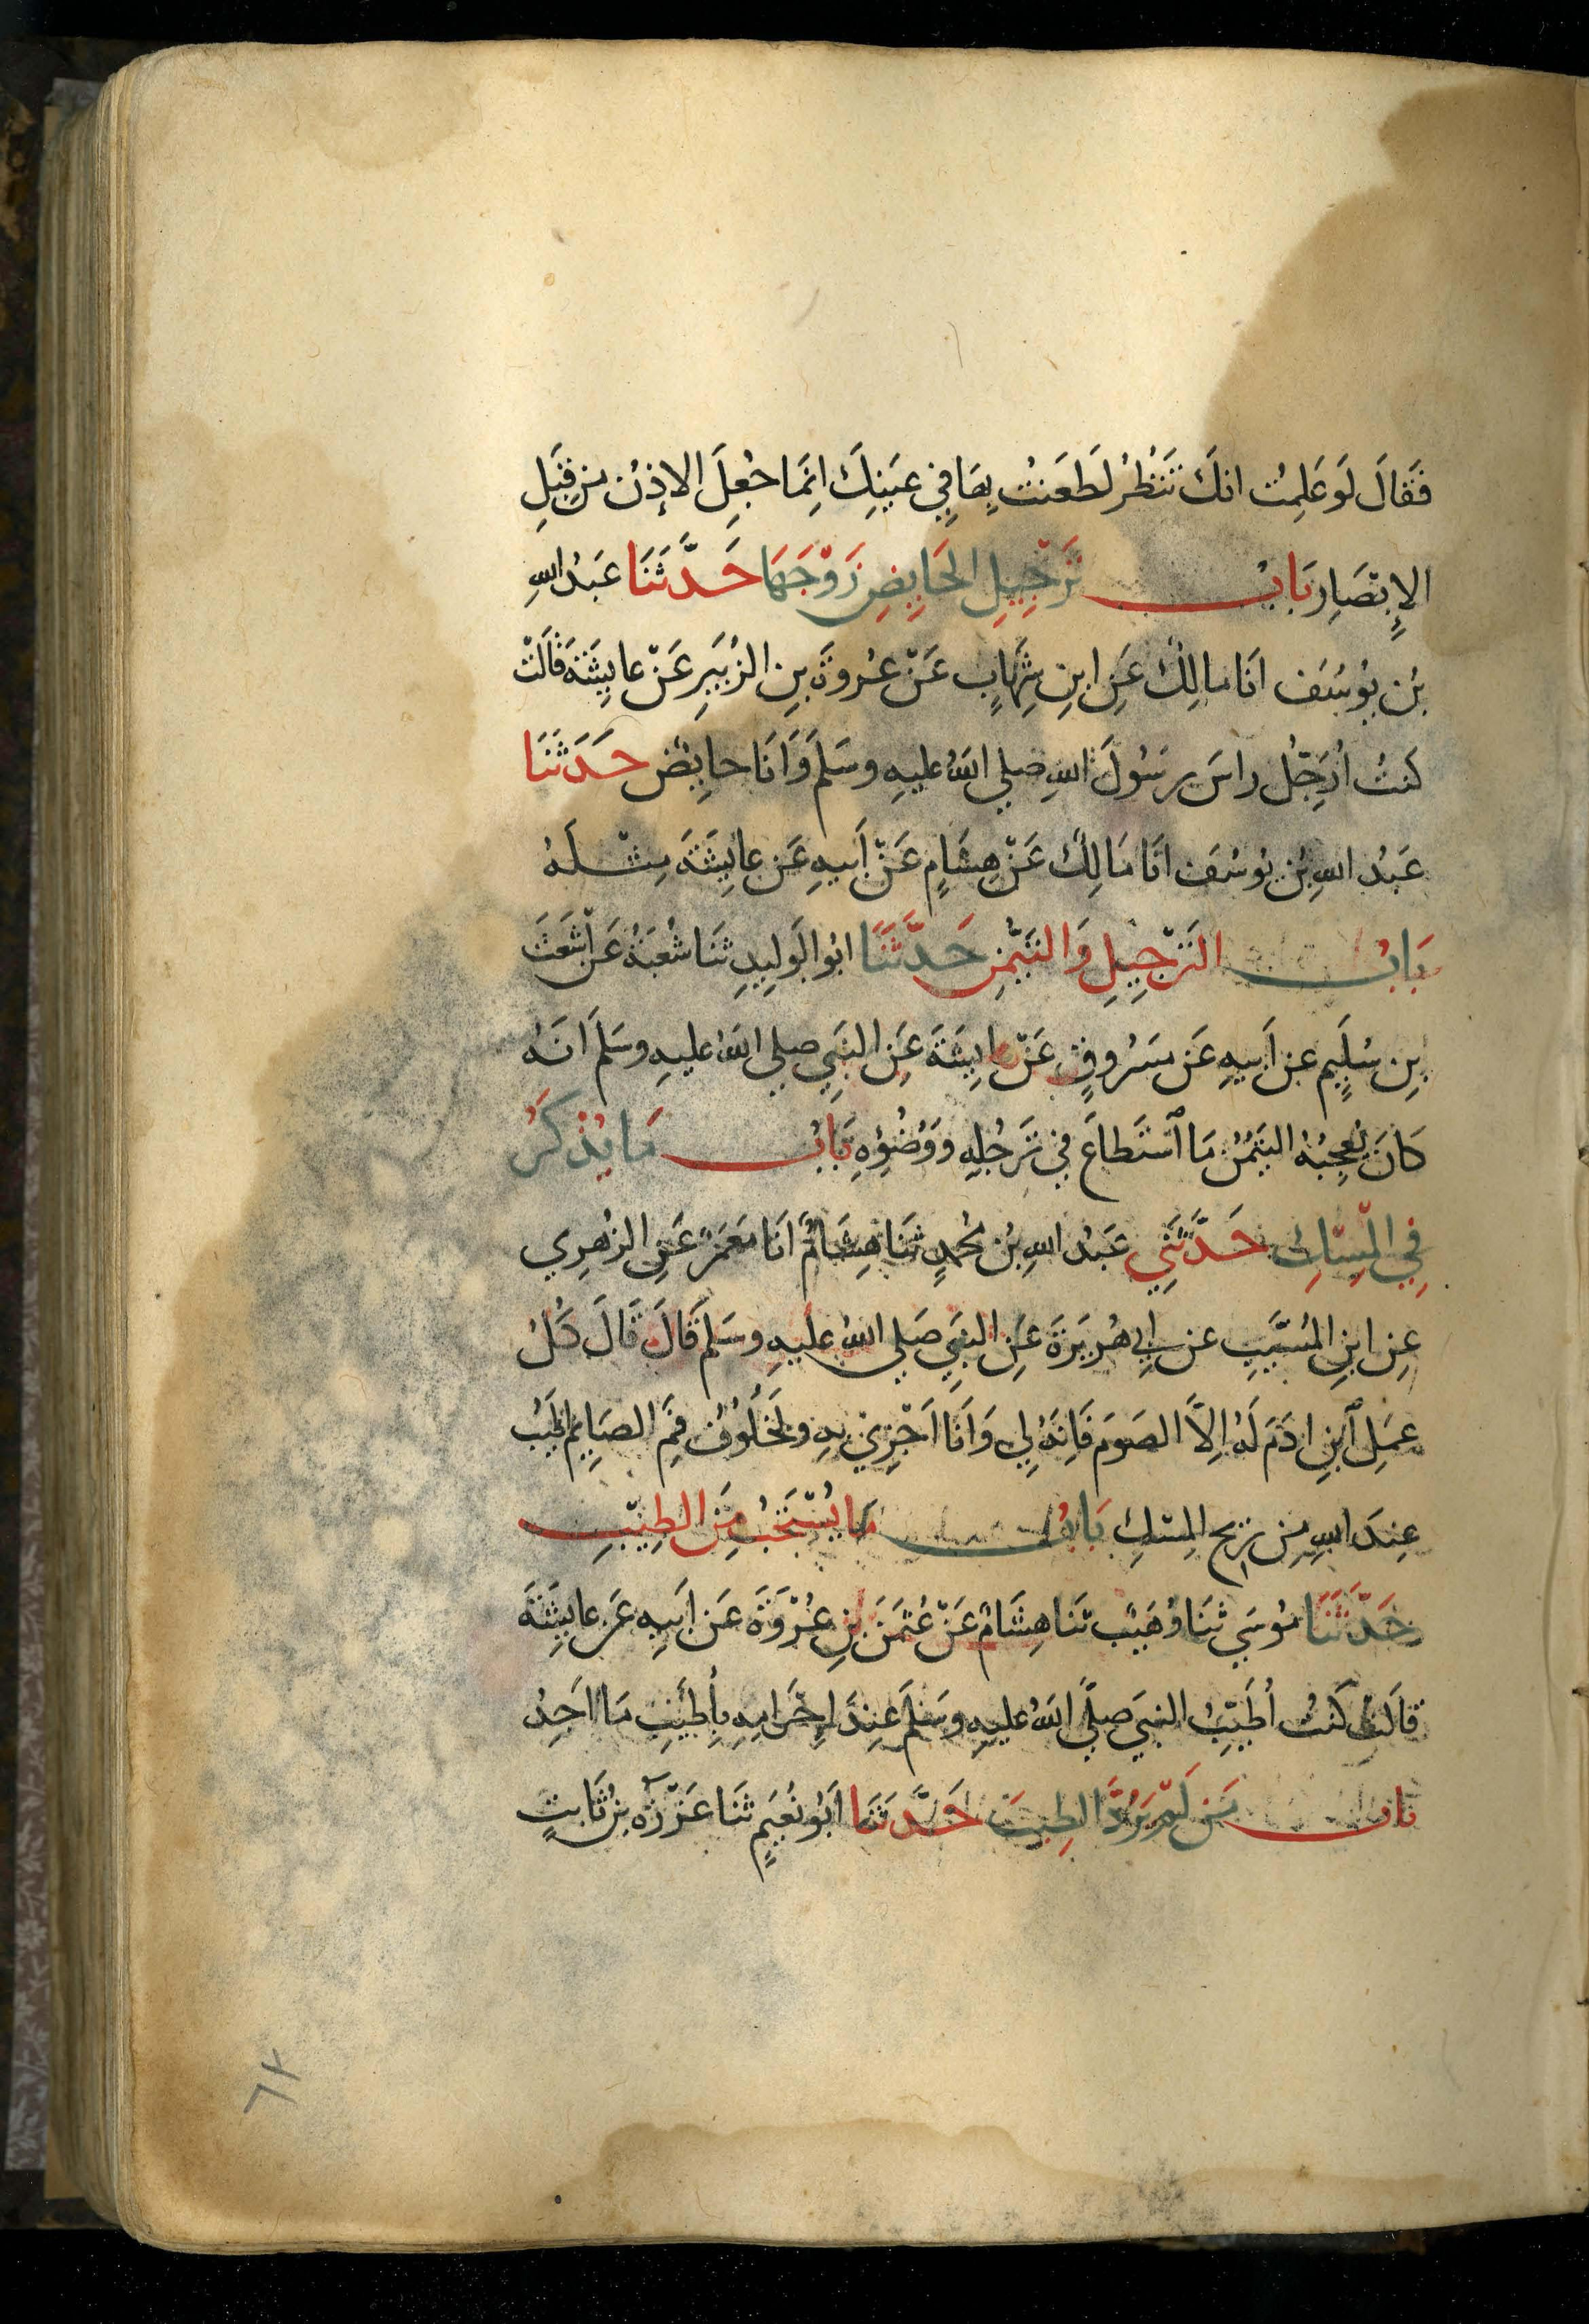 فَقَالَ لَوْ عَلِمْتُ انكَ تَنْظُرُ لَطَعَنْتُ بِهَا فِي عَيْنِكَ اِنمَا جُعِلَ الاِذنُ مِن قِبَلِ
الاِبْصَارِ بَابُ تَرْجِيلِ الحَايِضِ زَوْجَهَا حَدَّثَنَا عَبدُ اللهِ
بْن يُوسُفَ انَا مَالِكٌ عَنِ ابنِ شِهَابٍ عَنْ عُروَةَ بنِ الزُبَيرِ عَنْ عايِشَةَ قَالَتْ
كنتُ اُرَجِّلُ راسَ رسُولِ اللهِ صلي اللهُ عليهِ وسَلمَ وَانَا حايِضٌ حَدثَنَا
عَبدُ اللهِ بن يُوسُفَ انَا مَالِكٌ عَنْ هِشَامٍ عَنْ اَبيهِ عَن عايِشَةَ مِثْلَهُ
بَابُ التَرْجِيلِ وَالتَيَمُّنِ حَدَّثَنَا ابُو الوَلِيدِ ثنَا شُعبَةُ عَنْ اَشْعَثَ
بنِ سُلَيمٍ عن اَبيهِ عَن مَسرُوقٍ عَنْ عايِشَةَ عَنِ النَبيِ صلي اللهُ عليهِ وسَلمَ انَهُ
كَانَ يُعجِبُهُ التَيَمُّنُ مَا اسْتَطَاعَ فِي تَرَجُلِهِ وَوُضُوئِهِ بَابُ مَا يُذْكَرُ
فِي المِسْكِ حَدَّثَنِي عَبدُ اللهِ بنُ مُحمدٍ ثنَا هِشَامٌ انَا مَعمَرٌ عَنِ الزُهرِي
عنِ ابنِ المُسَيَّبِ عن ابِي هُريرَةَ عَنِ النَبيِ صَلي اللهُ عليهِ وسَلمَ قَالَ قَالَ كُلُ
عَمَلِ ابنِ ادَمَ لَهُ اِلاَّ الصَومَ فَاِنهُ لِي وَانَا اَجْزِي بِهِ ولَخُلُوفُ فَمِ الصَايِمِ اطْيَبُ
عِندَ اللهِ مِن رِيحِ المِسكِ بَابُ مَا يُسْتَحَبُّ مِنَ الطِيْبِ
حَدَّثَنَا مُوسَي ثنَا وُهَيْبٌ ثنَا هِشَامٌ عَنْ عُثمَنَ بنِ عُرْوَةَ عَن اَبيهِ عَن عايِشَةَ
قالَتْ كنتُ اُطَيِّبُ النبيَ صلَّي اللهُ عليهِ وسَلمَ عندَ اِحْرَامِهِ بِأَطْيَبِ مَا اَجِدُ
بَابُ مَن لَمْ يَرُدَّ الطِيبَ حَدَّثَنَا ابُو نُعَيمٍ ثنَا عَزْرَةُ بنُ ثَابتٍ
٦٢